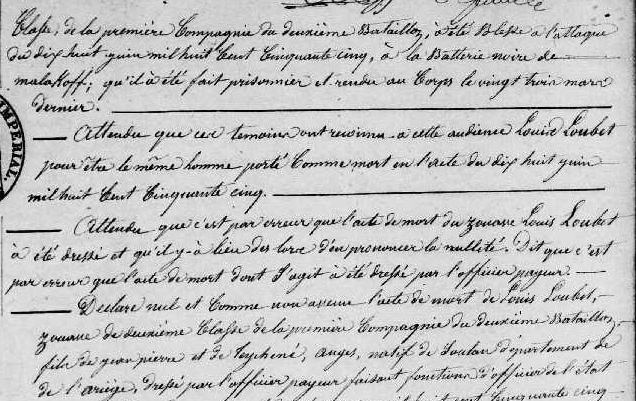 Classe, de la première Compagnie du deuxième Bataillon, à été Blessé à l'attaque
du dix huit yuin mil huit Cent Cinquante cinq, à la Batterie noire de
malakoff; qu'il à été fait prisonnier et rendu au Corps le vingt trois mars
dernier.
Attendu que ces temoins ont reconnu à cette audience Louis Loubet
pour être le même homme porté Comme mort en l'acte du dix huit yuin
mil huit Cent Cinquante cinq.
Attendu que c'est par erreur que l'acte de mort du zouave Louis Loubet
à été dressé et qu'il y-à lieu des lors d'en prononcer la nullité. Dit que c'est
par erreur que l'acte de mort dont s'agit à été dressé par l'officier payeur.
Declare nul et Comme non avenue l'acte de mort de Louis Loubet,
zouave de deuxième Classe de la première Compagnie du deuxième Bataillon,
fils de yean pierre et de Teychené, anges, natif de Soulan département de
de l'ariège, dressé par l'officier payeur faisant fonctions d'officier de l'état
huit Cent Cinquante cinq
IMPERIAL